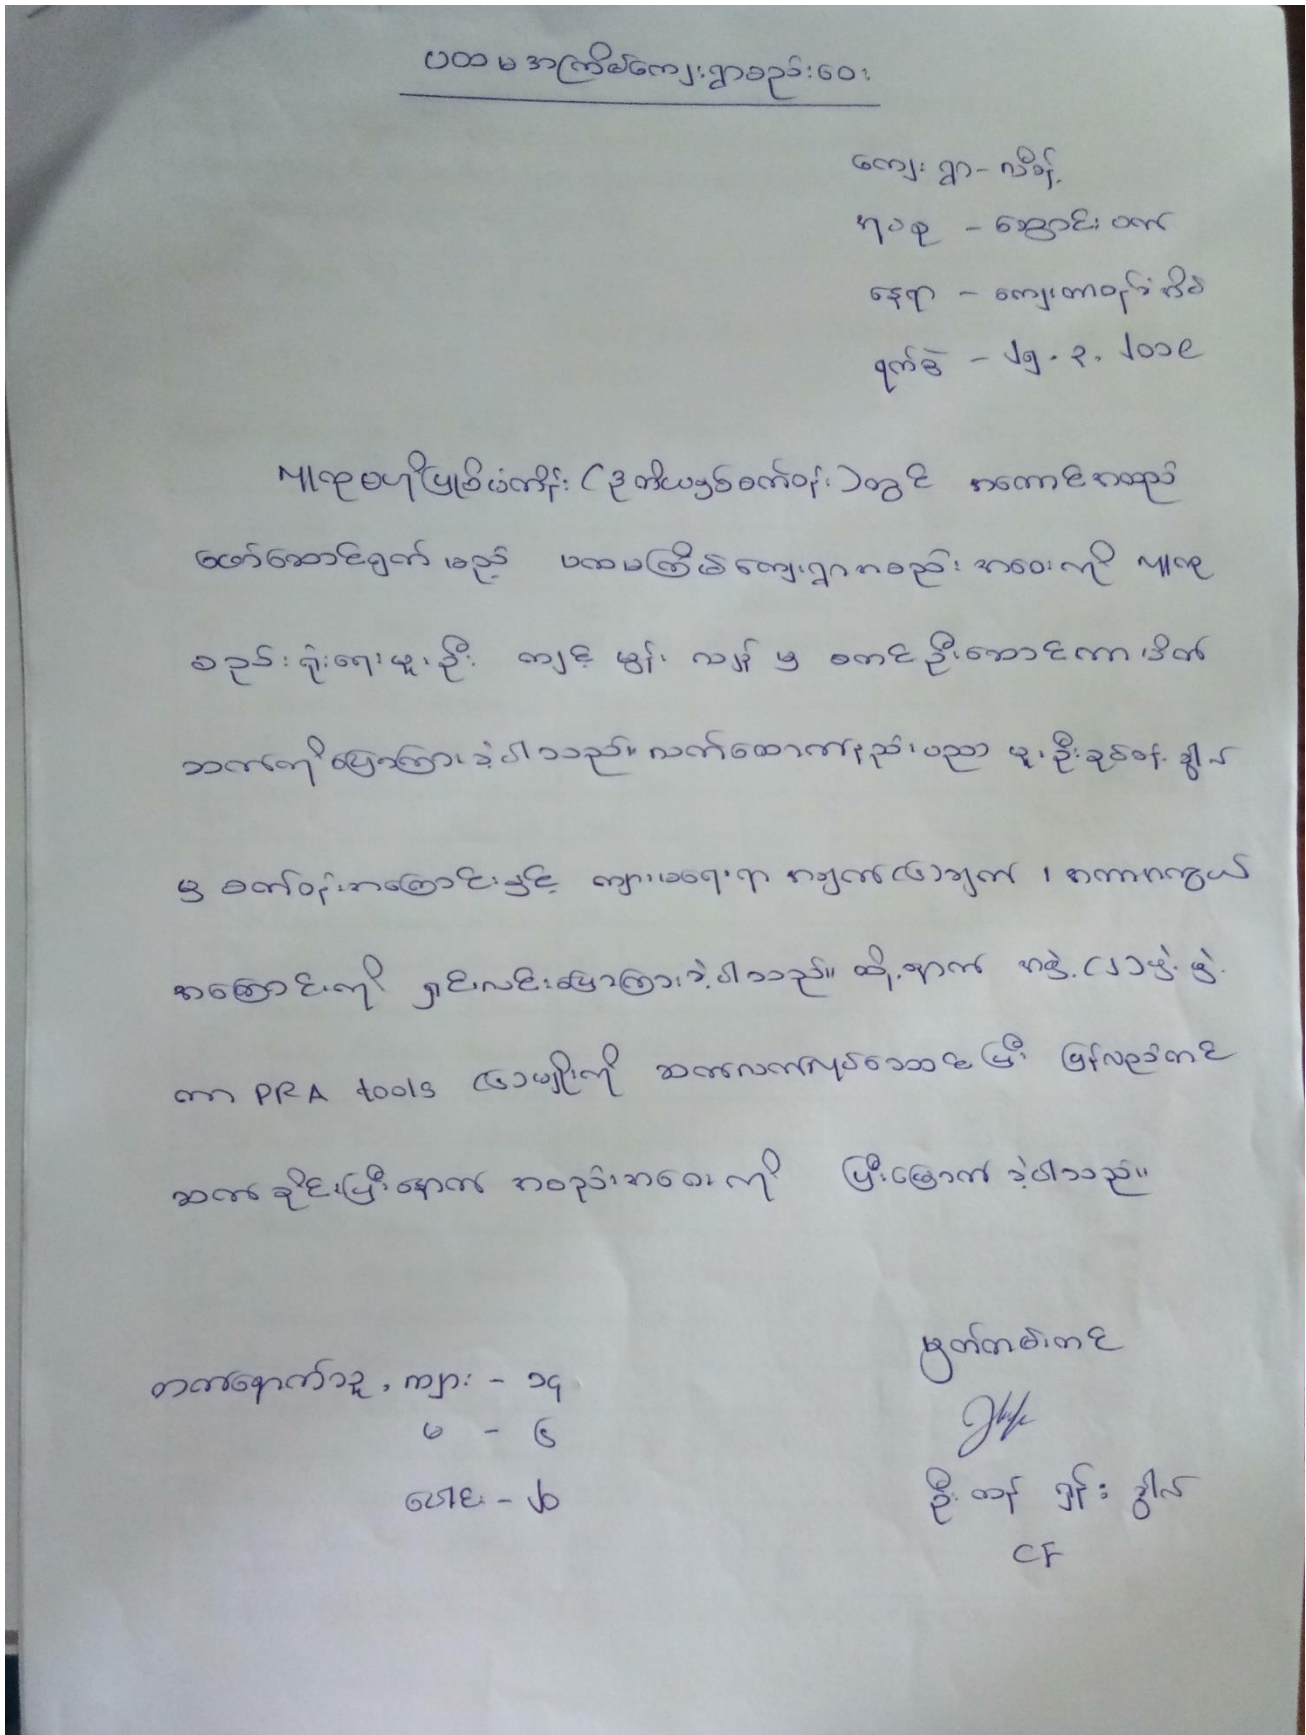 ပထမအကြိမ်ကျေးရွာစည်းဝေး
ကျေးရွာ - လိခန့်
အုပ်စု - ညောင်းပတ်
နေရာ - ကျေးတာဝန်ခံအိမ်
ရက်စွဲ - ၂၅.၃.၂၀၁၉
လူထုဗဟိုပြုစီမံကိန်း (ဒုတိယနှစ်စက်ဝန်း) တွင် အကောင်အထည်
ဖော်ဆောင်ရွက်မည့် ပထမကြိမ်ကျေးရွာအစည်းအဝေးကို လူထု
စည်းရုံးရေးမှူး ဦးကျင့်မွန်းလျန် မှ စတင်ဦးဆောင်ကာ မိတ်
ဆက်ကိုပြောကြားခဲ့ပါသည်။ လက်ထောက်နည်းပညာမှူး ဦးခုပ်ခန့်ဒွါလ်
မှ စက်ဝန်းအကြောင်းနှင့် ကျား၊မရေးရာ အချက်(၆)ချက်၊ အကာအကွယ်
အကြောင်းကို ရှင်းလင်းပြောကြားခဲ့ပါသည်။ ထို့နောက် အဖွဲ့(၂)ဖွဲ့ဖွဲ့
ကာ PRA tools (၆)မျိုးကို ဆက်လက်လုပ်ဆောင်ပြီး ပြန်လည်တင်
ဆက်ခိုင်းပြီးနောက် အစည်းအဝေးကို ပြီးမြောက်ခဲ့ပါသည်။
တက်ရောက်သူ၊ ကျား - ၁၄
မ - ၆
ပေါင်း - ၂၀
မှတ်တမ်းတင်
ဦးထန်ရှန်းဒွါလ်
CF